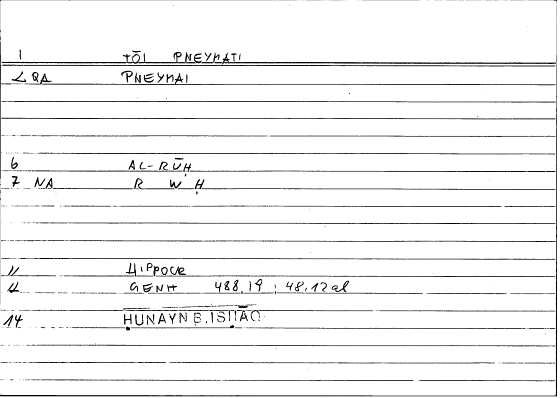 1 TŌI PNEYMATI
2 QA PNEYMAI
6 AL-RŪḤ
7 NA R W Ḥ
11 HIPPOCR
12 GENH 488,19 ; 48,12 al
14 ḤUNAYN B. ISḤĀQ